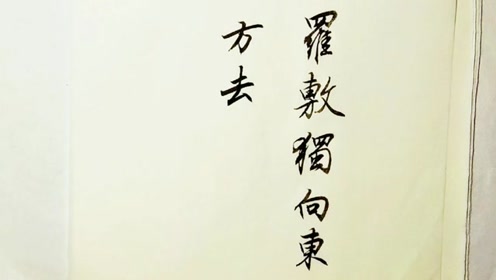 羅敷獨向東
方去